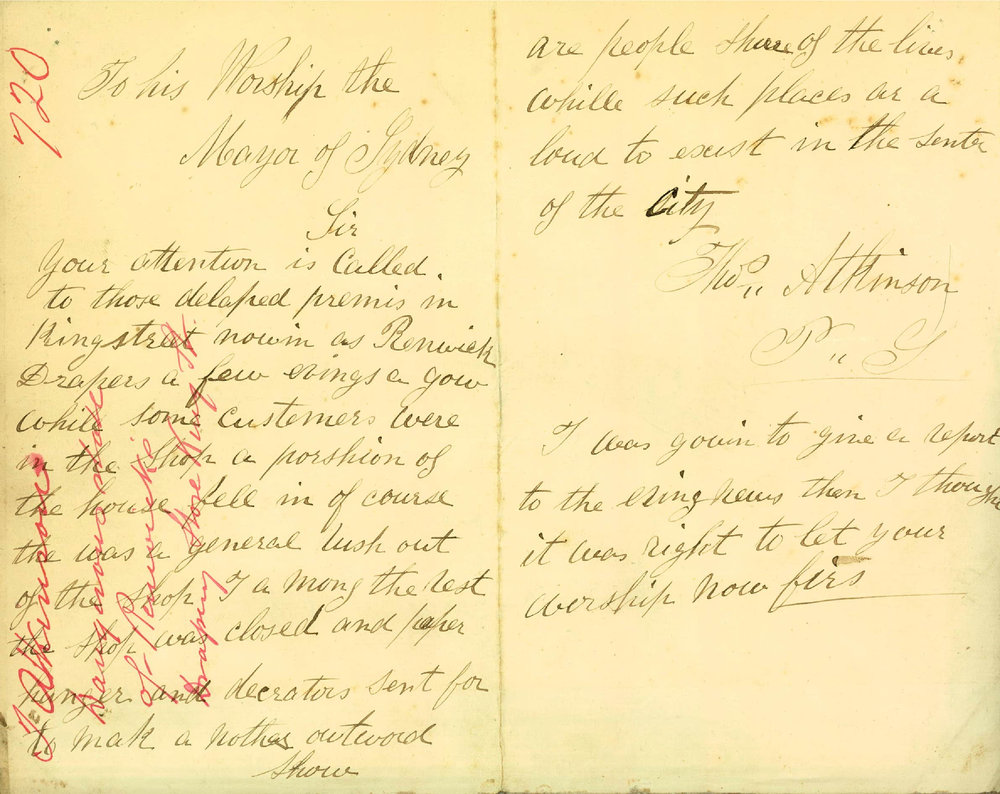 720
To his Worship the
Mayor of Sydney
Sir
Your attention is Called.
to those delaped premis in
Kingstreet nowin as Renwick
Drapers a few evings a gow
while some customers were
in the shop a porshion of
the house fell in of course
the was a general rush out
of the shop I a mong the rest
the shop was closed and paper
hanger and decrators sent for
to mak a nother outword
show
T Atkinson
Dangerous state
of Renwicks
Drapery Store King St
are people shure of the lives
whille such places ar a
loud to exist in the senter
of the city
Thos,, Atkinson
P,, S
I was gowin to give a report
to the evingnews then I thought
it was right to let your
worship now firs